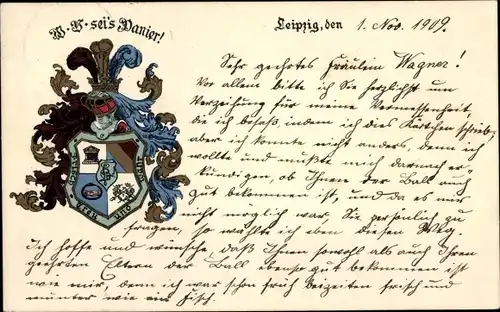 W. V. sei's Panier!
Leipzig, den 1. Nov. 1909.
Sehr geehrtes Fräulein Wagner!
Vor allem bitte ich Sie herzlichst um
Verzeihung für meine Vermessenheit,
die ich besaß indem ich dies Kärtchen schrieb;
aber ich konnte nicht anders, denn ich
wollte und mußte mich darnach er-
kundigen, ob Ihnen der Ball auch
gut bekommen ist, und da es mir
nicht möglich war, Sie persönlich zu
fragen, so wählte ich eben diesen Weg.
Ich hoffe und wünsche, daß Ihnen sowohl als auch Ihren
geehrten Eltern der Ball ebenso gut bekommen ist
wie mir, denn ich war schon früh beizeiten frisch und
munter wie ein Fisch.
TREU UND